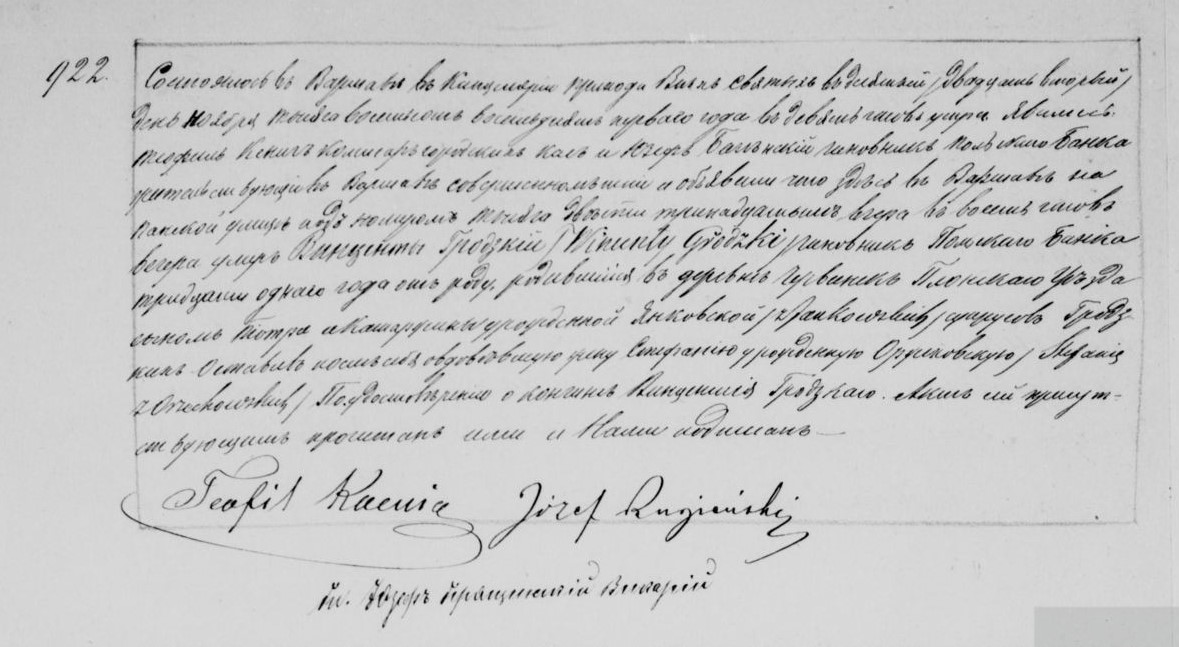 922.
Состоялось въ Варшавѣ въ Канцеляріи прихода Всѣхъ Святыхъ въ десятый /двадцать вторый/
день ноября тысяча восемьсотъ восемьдесятъ перваго года въ девять часовъ утра. Явились
Теофилъ Кенигъ комисаръ городскихъ касъ и Юзефъ чиновникъ Польскаго Банка
жительствующіе въ Варшавѣ совершеннолѣтніе и объявили что здѣсь въ Варшавѣ на
Панской улицѣ подъ номеромъ тысяча двѣсти тринадцатымъ вчера въ восемь часовъ
вечера умеръ Винценты Гродзкій /Wincenty Grodzki/ чиновникъ Польскаго Банка
тридцати одного года отъ роду, родившійся въ деревнѣ Червинскъ Плонскаго Уѣзда
сыномъ Петра и Катаржины урожденной Янковской /z Jankowskich/ супруговъ Гродз-
кихъ. Оставивъ послѣ себя овдовѣвшую жену Стефанію урожденную Оржеховскую /Stefanię
z Orzechowskich/. По удостовѣреніи о кончинѣ Винцентія Гродзкаго. Актъ сей присут-
ствующимъ прочитанъ ими и Нами подписанъ —
Teofil Koenig Józef
Кс. Викарій